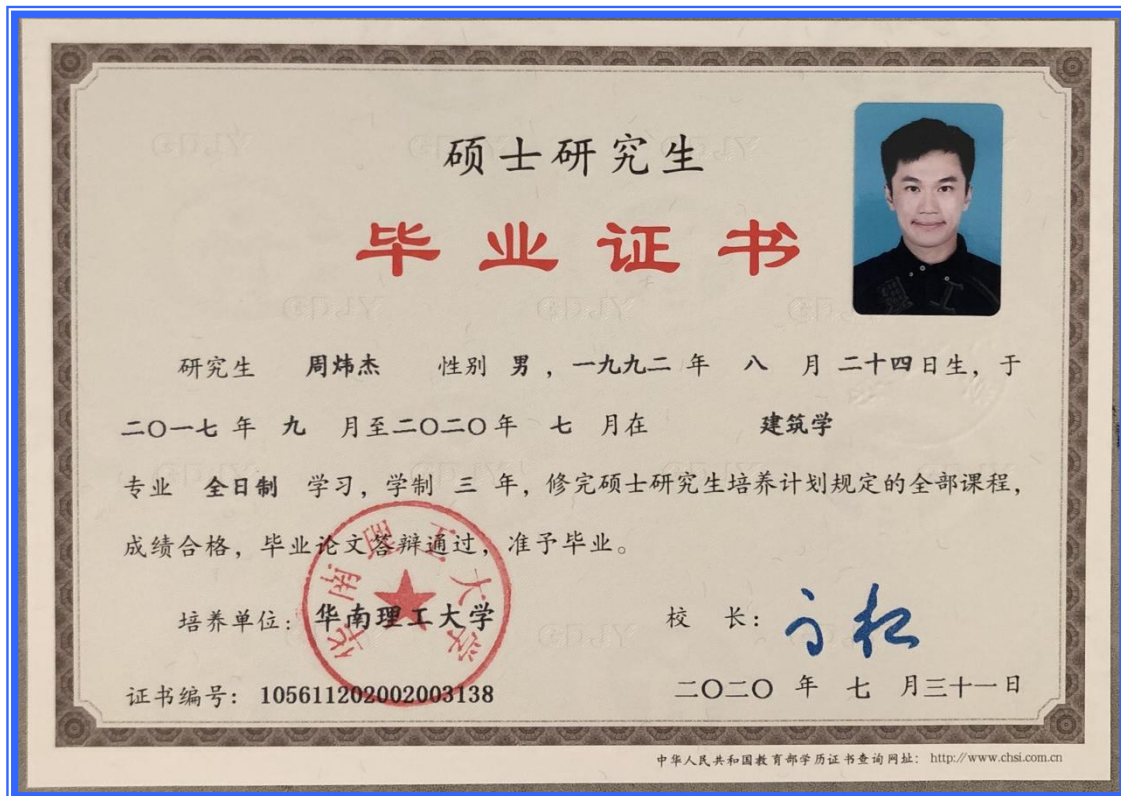 硕士研究生
毕业证书
研究生 周炜杰 性别 男 ，一九九二 年 八 月 二十四日生，于
二〇一七 年 九 月至二〇二〇年 七 月在 建筑学
专业 全日制 学习，学制 三 年，修完硕士研究生培养计划规定的全部课程，
成绩合格，毕业论文答辩通过，准予毕业。
培养单位：华南理工大学
校 长：
华南理工大学
证书编号：105611202002003138
二〇二〇 年 七 月三十一日
中华人民共和国教育部学历证书查询网址：http://www.chsi.com.cn